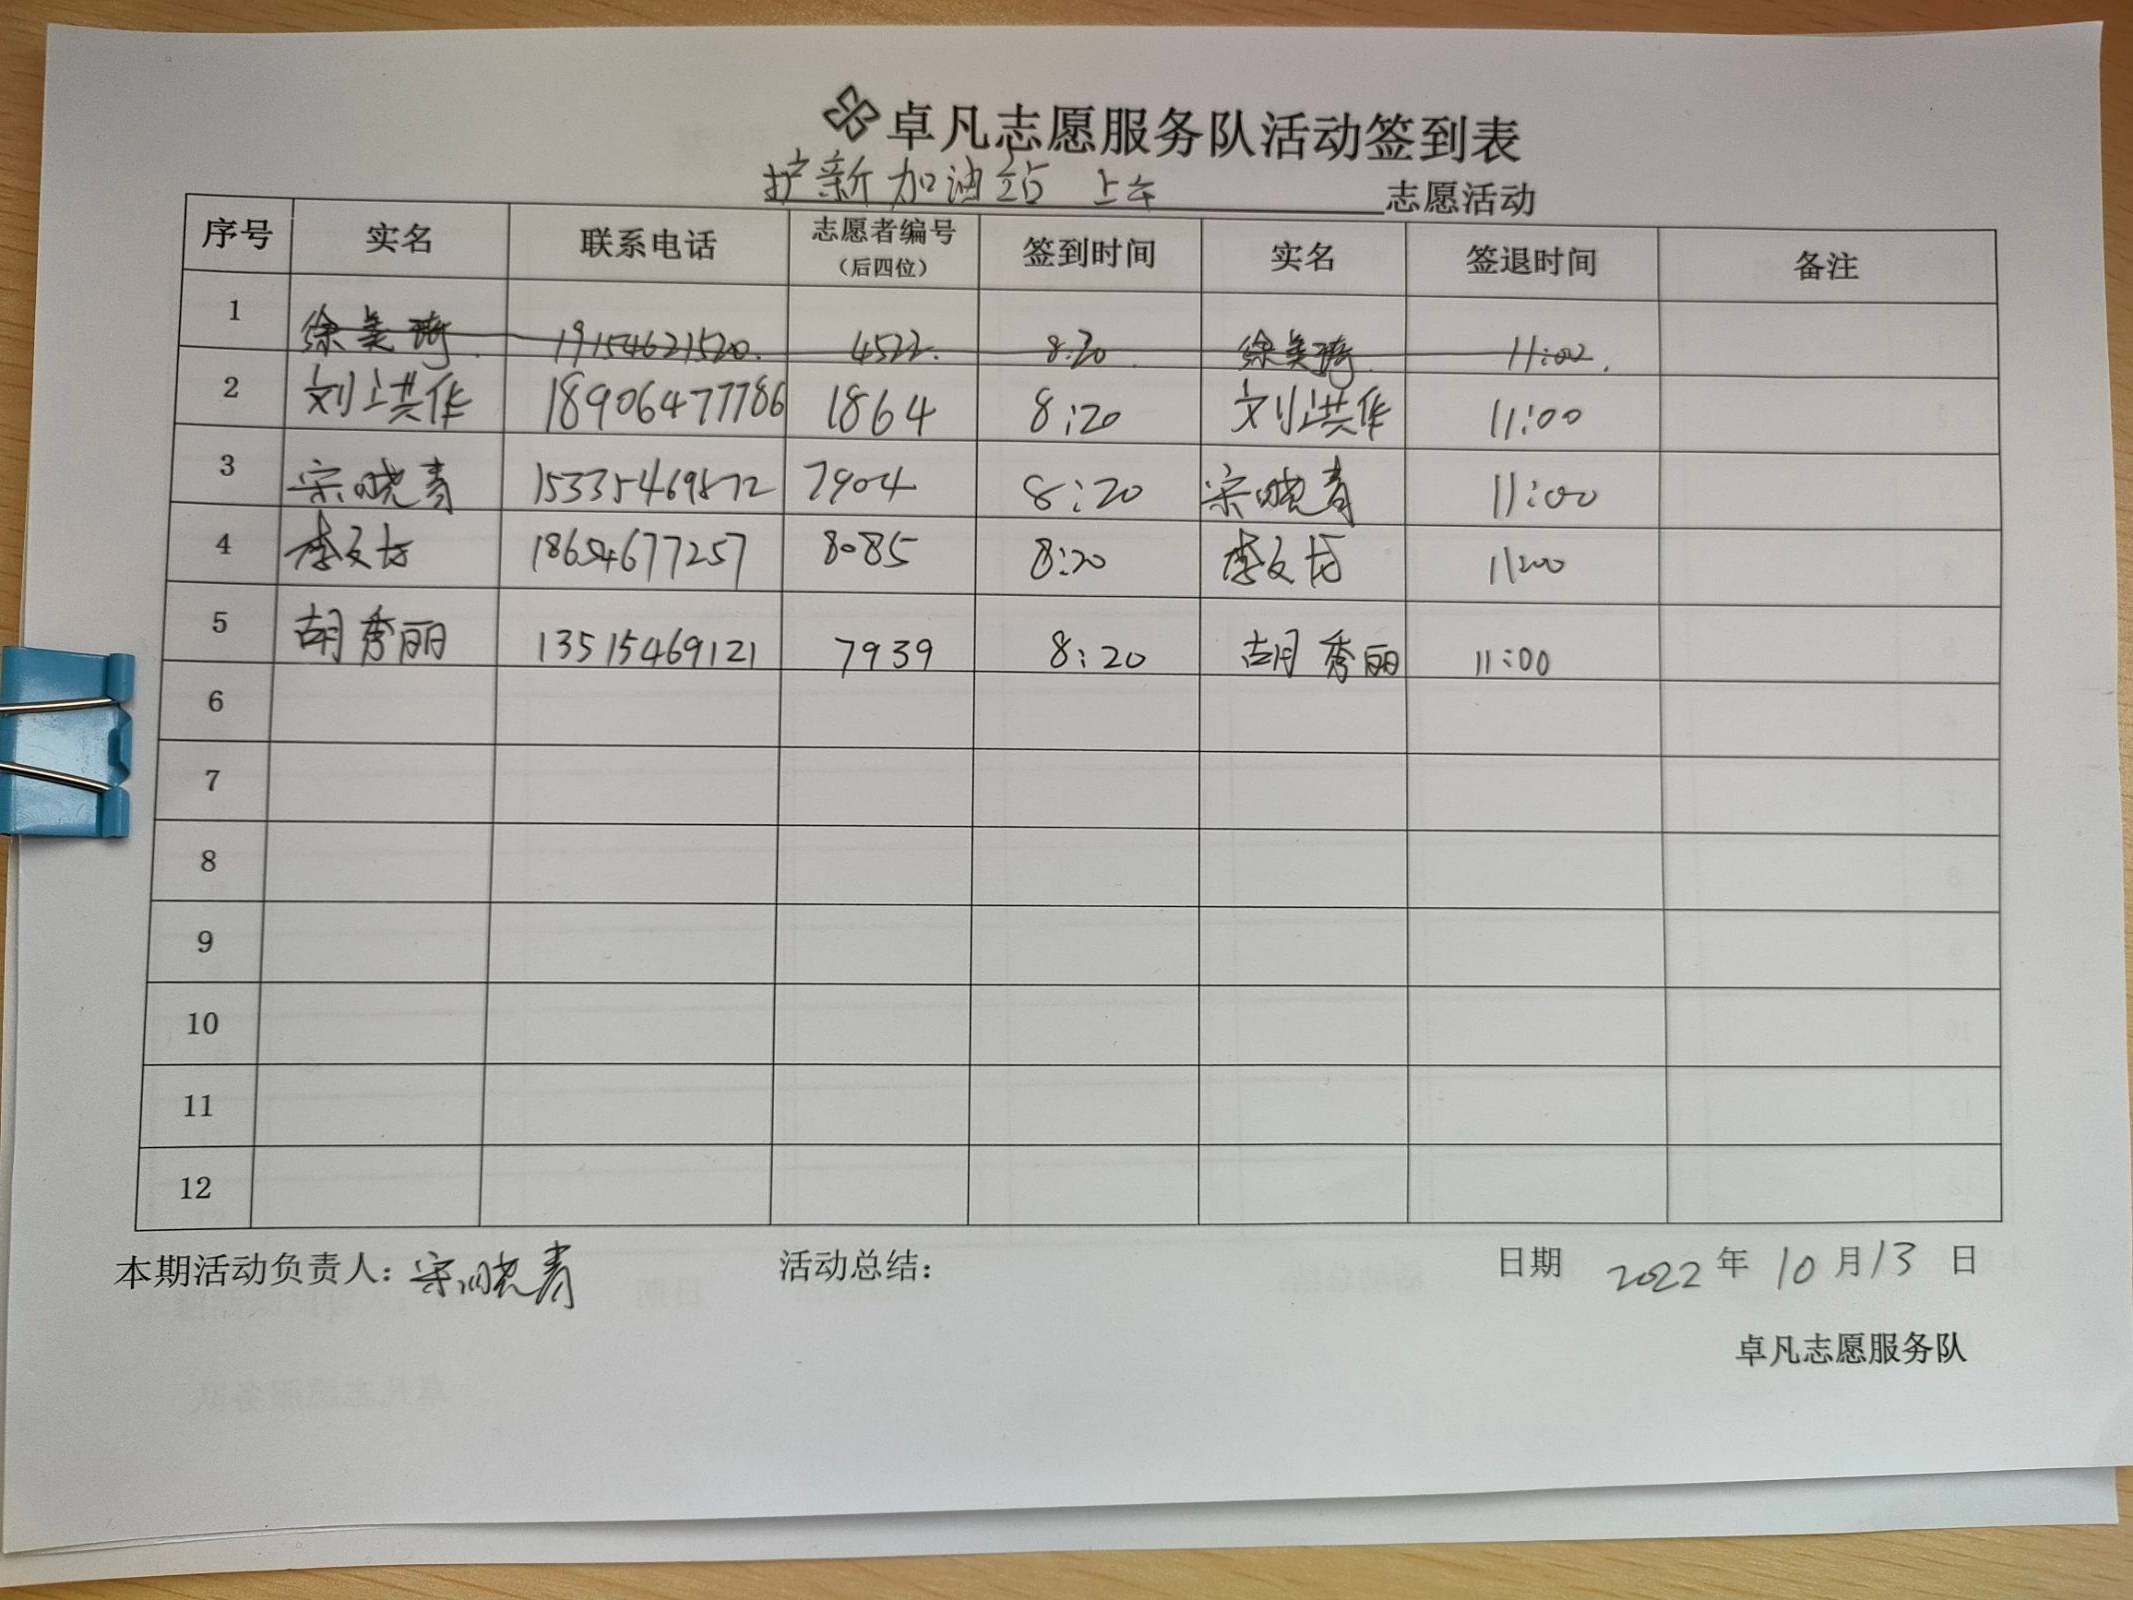 卓凡志愿服务队活动签到表
护新加油站 上午 志愿活动
序号 实名 联系电话 志愿者编号（后四位） 签到时间 实名 签退时间 备注
1 徐美琦 19154621520. 4522. 8:20 徐美琦 11:02.
2 刘洪华 18906477786 1864 8:20 刘洪华 11:00
3 宋晓青 15335469872 7904 8:20 宋晓青 11:00
4 李文 18654677257 8085 8:20 李文 11:00
5 胡秀丽 13515469121 7939 8:20 胡秀丽 11:00
6
7
8
9
10
11
12
本期活动负责人：宋晓青 活动总结： 日期 2022 年 10 月 13 日
卓凡志愿服务队